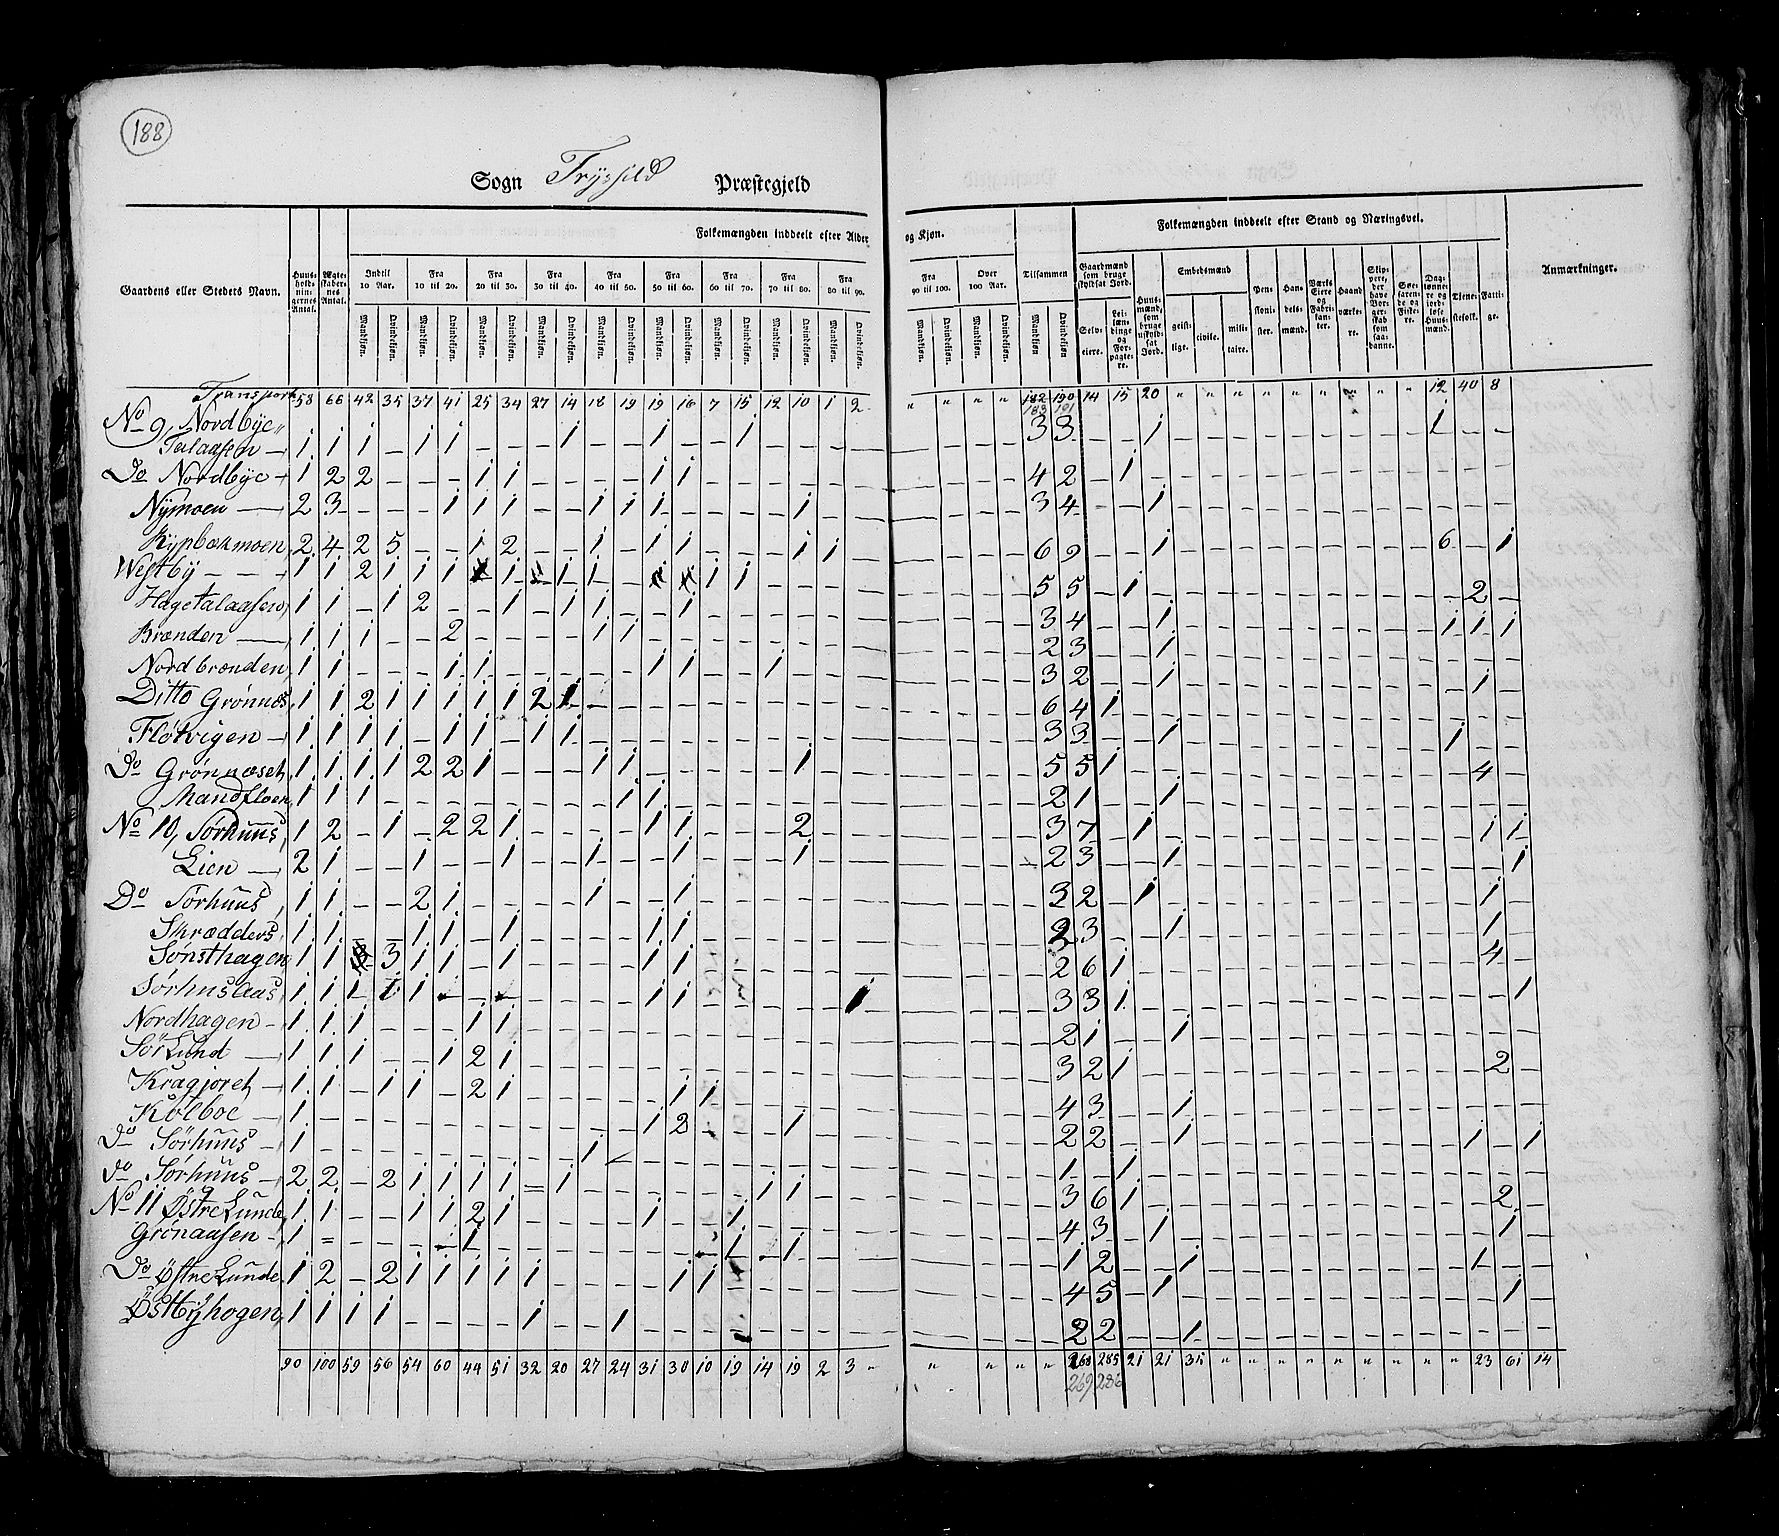 188
Sogn Trÿssild Præstegjeld
Folkemængden inddeelt efter Alder og Kjøn. Folkemængden inddeelt efter Stand og Næringsvei.
Gaardens eller Stedets Navn. Huusholdningernes Antal. Ægteskabernes Antal. Indtil 10 Aar. Fra 10 til 20. Fra 20 til 30. Fra 30 til 40. Fra 40 til 50. Fra 50 til 60. Fra 60 til 70. Fra 70 til 80. Fra 80 til 90. Fra 90 til 100. Over 100 Aar. Tilsammen Gaardmænd som bruge skyldsat Jord. Huusmænd, som bruge uskyldsat Jord. Embedsmænd Pensionister. Handelsmænd. Værks Eiere og Fabrikanter. Haandværkere. Skippere, der have Borgerskab som saadanne. Søefarende og Fiskere. Daglønnere og jordløse Huusmænd. Tjenestefolk. Fattige. Anmærkninger.
Mandkjøn. Qvindekjøn. Selveiere. Leilændinge og Forpagtere. geistlige. civile. militaire.
Transport 58 66 42 35 37 41 25 34 27 14 18 19 19 16 7 15 12 10 1 2 " " " " 182 190 14 15 20 " " " " " " " " " " 12 40 8
183 191
No 9, Nordbÿe
Talaasen 1 1 1 – 1 1 – – – 1 – – 1 – – 1 – – – – 3 3 – – 1 1 – –
Do Nordbÿe 1 2 2 – – – 1 1 – – – – 1 1 – – – – – – 4 2 – 1
Nÿmoen 2 3 – – – 1 1 1 – – 1 1 1 – – – – 1 – – 3 4 – – 1
Rÿpbækmoen 2 4 2 5 – – 1 2 – – 1 – 1 1 – – – 1 1 – 6 9 – – 1 6 – 1
Westbÿ 1 1 2 1 1 1 – 1 – 1 1 – – – 1 1 – – – – 5 5 – 1 – – 2 –
Hagetalaasen 1 1 – 1 2 – – 1 – 1 1 – – 1 – – – – – – 3 4 – – 1 1 1 1
Brænden 1 1 1 – – 2 – – – – 1 1 – – – – – – – – 2 3 – – 1
Nordbrænden 1 1 – – – 1 1 – – – – – 1 1 – – 1 – – – 3 2 – – 1 – 1 –
Ditto Grønnæs 1 1 2 1 1 1 1 1 2 1 – – – – – – – – – – 6 4 1
Fløtvigen 1 1 1 1 – 1 1 – 1 1 – – – – – – – – – – 3 3 – – 1 1 – –
Do Grønnæset 1 1 1 1 2 2 1 – – – 1 1 – – – – – 1 – – 5 5 1 – – – 4 –
Mandfloen 1 1 1 – – – – – – – – 1 1 – – – – – – – 2 1 – – 1
No 10, Sørhuus 1 2 – 1 – 2 2 1 – – – – 1 1 – – – 2 – – 3 7 – 1 – – 1 1
Lien 2 1 – – 1 – – 1 – – 1 – – 1 – – – 1 – – 2 3 – – 1 – – 1
Do Sørhuus 1 1 – – 2 1 – – – – 1 – – 1 – – – – – – 3 2 – 1 – – 1 –
Skrædders 1 1 – – 1 1 – 1 – – – – 1 1 – – – – – – 2 3 – – 1 – 1 –
Sønsthagen 1 1 – 3 1 1 – 1 – – – – 1 1 – – – – – – 2 6 1 – – – 4 –
Sørhus Aas 1 1 1 1 1 – – – – – – – 1 1 – – – – – 1 3 3 1 – – – – 1
Nordhagen 1 1 1 – – – 1 1 – – – – – – – – – – – – 2 1 – – 1
Sør Lund 1 1 1 – – 1 2 1 – – – – – – – – – – – – 3 2 1 – – – 2 –
Kragjoret 1 1 – 1 1 – 2 1 – – – – – 1 1 – – – – – 4 3 – – 1
Kølboe 1 – – – – – – – – – – – 1 2 – – – 1 – – 2 2 – – 1 – 1 – 1
Do Sørhuus 1 – – – – – – – – – 1 – – – – – – – – – 1 – 1
Do Sørhuus 2 2 – 2 1 1 1 1 = 1 – – – – – – 1 1 – – 3 6 1 – – – 2 –
No 11 Østre Lunde 1 1 – – 1 1 2 1 – – – – 1 – – 1 – – – – 4 3 – 1 – – 1 –
Grønaasen 1 = – – – – 1 – – – – – – – – 1 – 1 – – 1 2 – – 1 1 – –
Do Østre Lunde 1 2 – 2 1 1 1 1 1 – – – – 1 1 – – – – – 4 5 – 1 – – 1 –
Østbÿhogen 1 1 1 1 – – – – 1 – – 1 – – – – – – – – 2 2 – – 1
90 100 59 56 54 60 44 51 32 20 27 24 31 30 10 19 14 19 2 3 " " " " " 268 285 21 21 35 " " " " " " " " " " 23 61 14
269 286